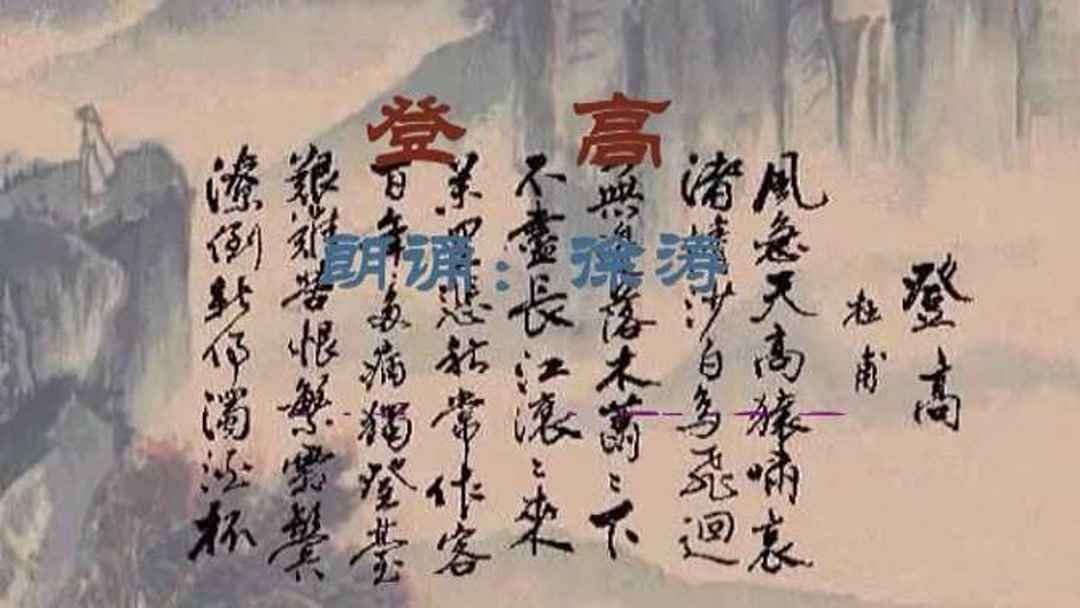 登 高
朗诵：徐涛
登高
杜甫
風急天高猿嘯哀
渚清沙白鳥飛迴
無邊落木蕭〻下
不盡長江滾〻來
萬里悲秋常作客
百年多病獨登臺
艱難苦恨繁霜鬢
潦倒新停濁酒杯